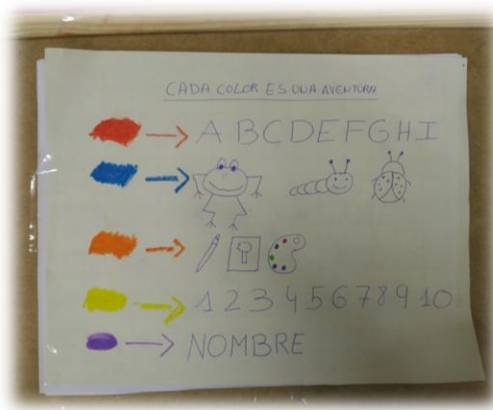 CADA COLOR ES UNA AVENTURA
A B C D E F G H I
1 2 3 4 5 6 7 8 9 10
NOMBRE